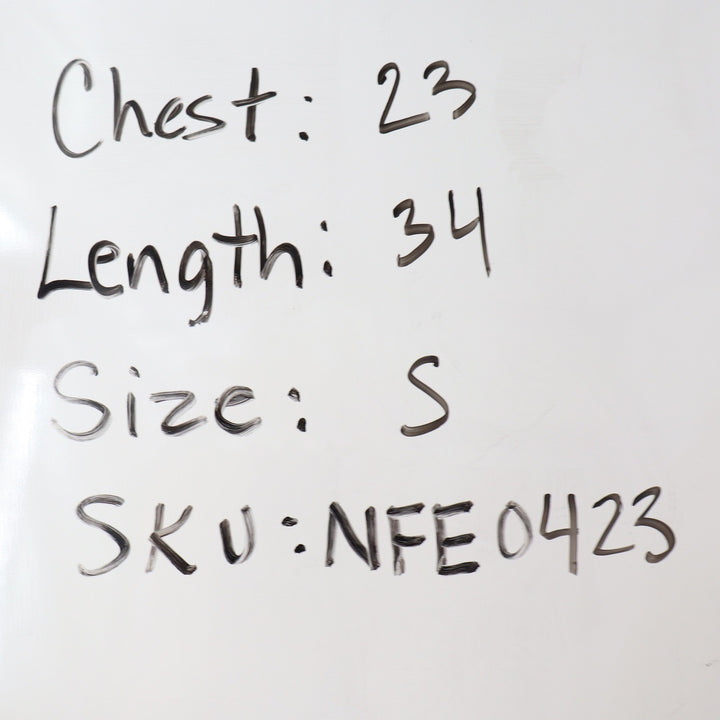 Chest: 23
Length: 34
Size: S
SKU: NFE0423